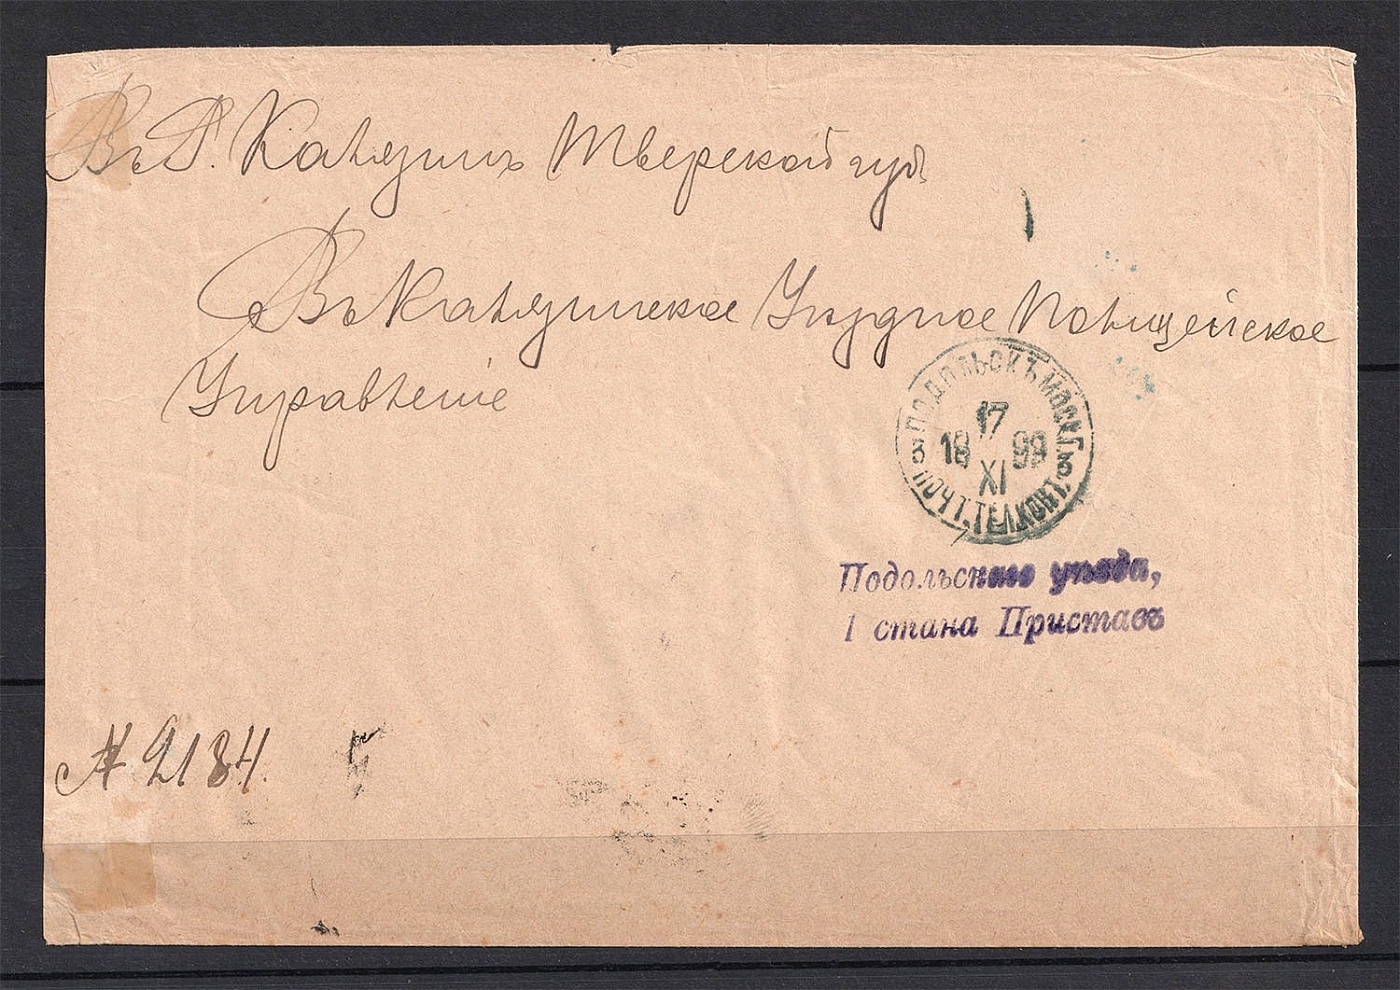 Въ Г. Калязинъ Тверской губ.
Въ Калязинское Уѣздное Полицейское
Управленіе
ПОДОЛЬСКЪ МОСК. Г.
17
18 99
XI
ПОЧТ. ТЕЛ. КОНТ.
Подольскаго уѣзда,
1 стана Приставъ
№ 2184.